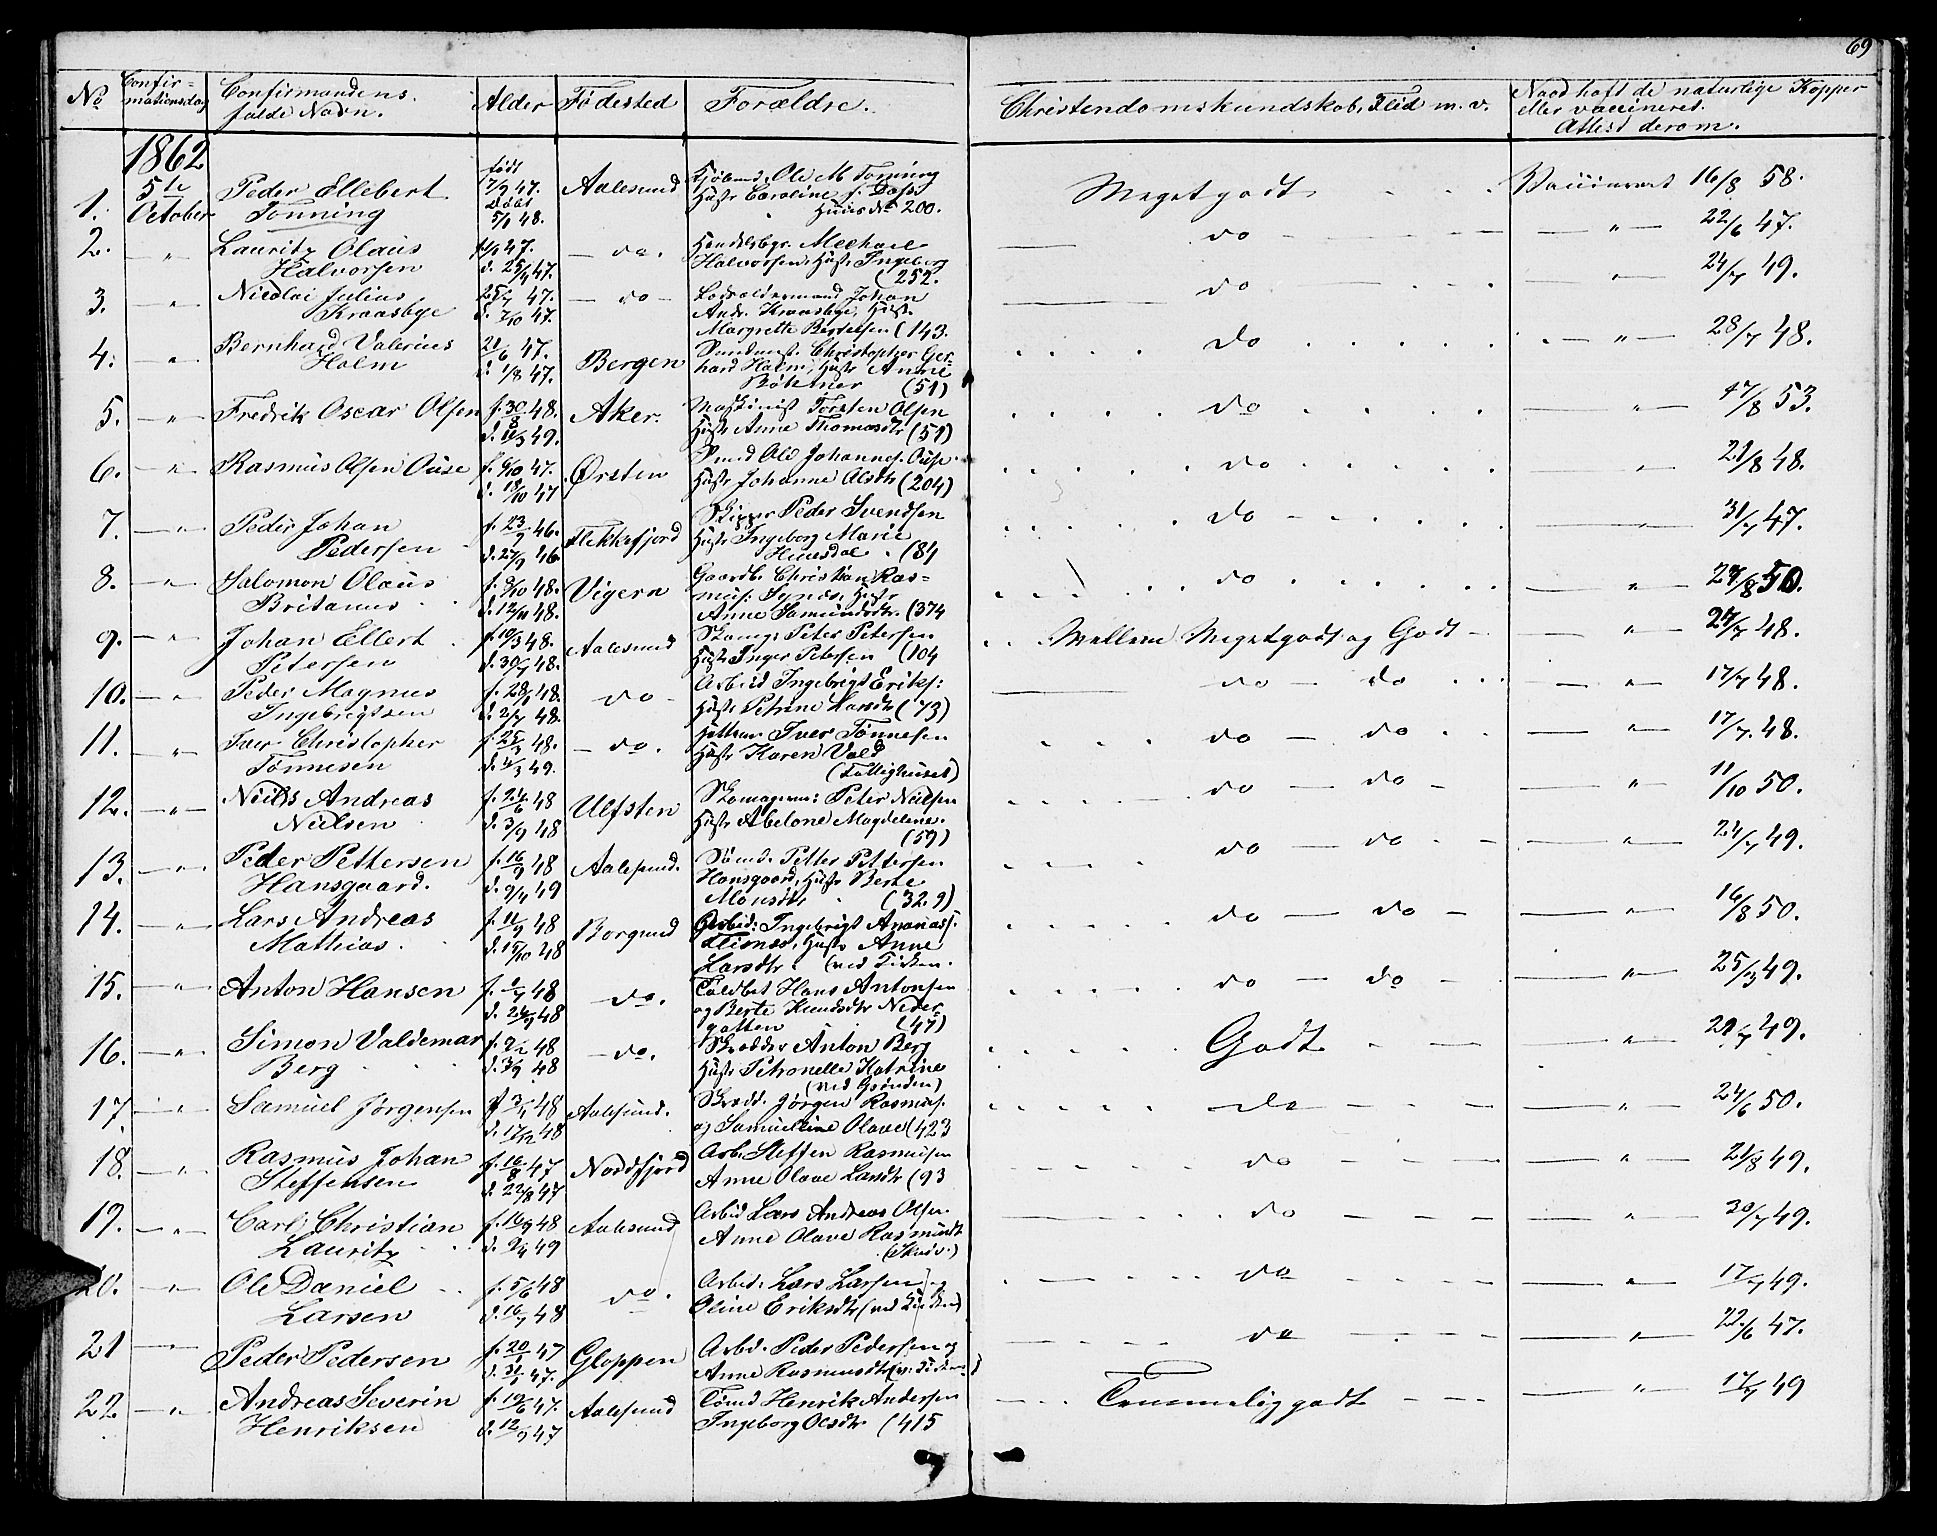 69
No Confirmationsdag Confirmandens fulde Navn. Alder Fødested Forældre. Christendomskundskab, Flid m. v. Naar haft de naturlige Kopper eller vaccineret. Attest derom.
1862
1. 5te October Peder Ellebert Tonning født 17/9 47. døbt 5/1 48. Aalesund Kjøbmd. Ole M Tonning Hustr Caroline f. Huus No 200. Megetgodt Vaccineret 16/8 58.
2. " Lauritz Olaus Halvorsen d. 25/4 47. do. Handelsbgr. Mechael Halvorsen, Hustr Ingeberg (252. do " 22/6 47.
3. " Nicolai Julius Kraasbye 25/7 47. d. 7/10 47. do Lodsoldermand Johan Andr. Kraasbye, Hustr. Margrethe Berntsen (143. do " 24/7 49.
4. " Bernhard Valerius Holm 21/6 47. d. 1/8 47. Bergen Christopher Gerhard Holm, Hustr Anne (51) do " 28/7 48.
5. " Fredrik Oscar Olsen f. 30/8 48. d. 11/3 49. Aker. Maskinist Torsten Olsen Hustr Anne Thomasdtr (51) do " 47/8 53.
6. " Rasmus Olsen Ouse f. 6/10 47. d. 18/10 47 Ørsten Smed Ole Johannes. Ouse Hustr Johanne Olsdtr (204) do " 21/8 48.
7. " Peder Johan Pedersen f. 23/7 46. d. 27/9 46 Flekkefjord Skipper Peder Svendsen Hustr Ingeborg Marie (84 do " 31/7 47.
8. " Salomon Olaus Britanus f. 9/10 48. d. 12/11 48. Vigern Gaardb. Christian Rasmus. Synes, Hustr Anne Samundsdtr. (374 do " 29/8 50.
9. " Johan Ellert Petersen f. 10/3 48. d. 30/4 48. Aalesund Skomgr Peter Petersen Hustr Inger Petersen (104 Mellem Megetgodt og Godt " 24/7 48.
10. " Peder Magnus Ingebrigtsen f. 28/4 48. d. 2/7 48. do Arbeid Ingebrigt Eriks: Hustr Petrine Larsdtr (73) do do " 17/7 48.
11. " Iver Christopher Tønnesen f. 25/3 48. d. 4/3 49. do. Iver Tønnesen Hustr Karen Vold (Fattighuset) do do " 17/7 48.
12. " Neils Andreas Neilsen f. 24/6 48 d. 3/9 48 Ulfsten Skomagerm: Peter Neilsen Hustr Abelone Magdelene. (59) do do " 11/10 50.
13. " Peder Pettersen Hansgaard. f. 16/9 48 d. 9/4 49 Aalesund. Sømd. Petter Pettersen Hansgaard, Hustr Berte Monsdtr (329) do do " 24/7 49.
14. " Lars Andreas Mathias f. 11/9 48 d. 15/10 48 Borgund Arbeid: Ingebrigt Ananiass. Flisnes, Hustr Anne Larsdtr. (ved Kirken. do do " 16/8 50.
15. " Anton Hansen f. 1/7 48 d. 24/9 48 do. Toldbet Hans Antonsen og Berte Knudsdtr Nedergatten (47) do do " 25/3 49.
16. " Simon Valdemar Berg f. 2/2 48 d. 3/9 48 do. Skrædder Anton Berg Hustr Petronelle Katrine (ved Grønden) Godt " 29/7 49.
17. " Samuel Jørgensen f. 3/11 48 d. 17/12 48 Aalesund. Skrædd. Jørgen Rasmus. og Samueline Olave (423 do " 24/6 50.
18. " Rasmus Johan Steffensen f. 16/8 47 d. 22/8 47 Nordfjord Arb. Steffen Rasmusen Anne Olave Larsdtr (93 do " 21/8 49.
19. " Carl Christian Lauritz f. 16/9 48 d. 9/4 49 Aalesund Arbeid Lars Andreas Olsen Anne Olave Rasmusdtr do " 30/7 49.
20. " Ole Daniel Larsen f. 5/6 48 d. 16/7 48 do. Arbeid. Lars Larsen og Oline Eriksdtr (ved Kirken) do " 17/7 49.
21 " Peder Pedersen f. 20/1 47 d. 31/1 47. Gloppen Arbd. Peder Pedersen og Anne Rasmusdtr (v. Kirken) do " 22/6 47.
22. " Andreas Severin Henriksen f. 10/6 47. d. 12/9 47 Aalesund Tømd Henrik Andersen Ingeborg Olsdtr (415 Temmelig godt " 17/7 49